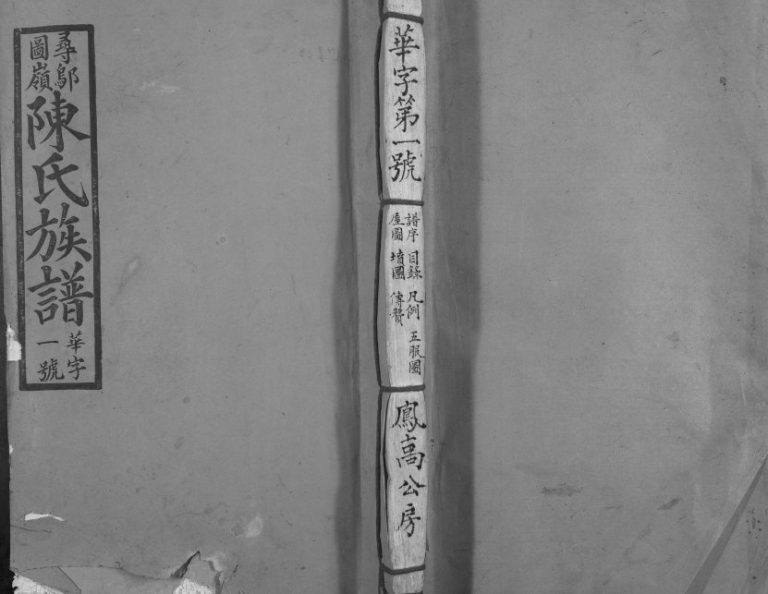 尋鄔
圖嶺
陳氏族譜
華字
一號
華字第一號
譜序 目錄 凡例 五服圖
廬圖 墳圖 傳贊
鳳高公房